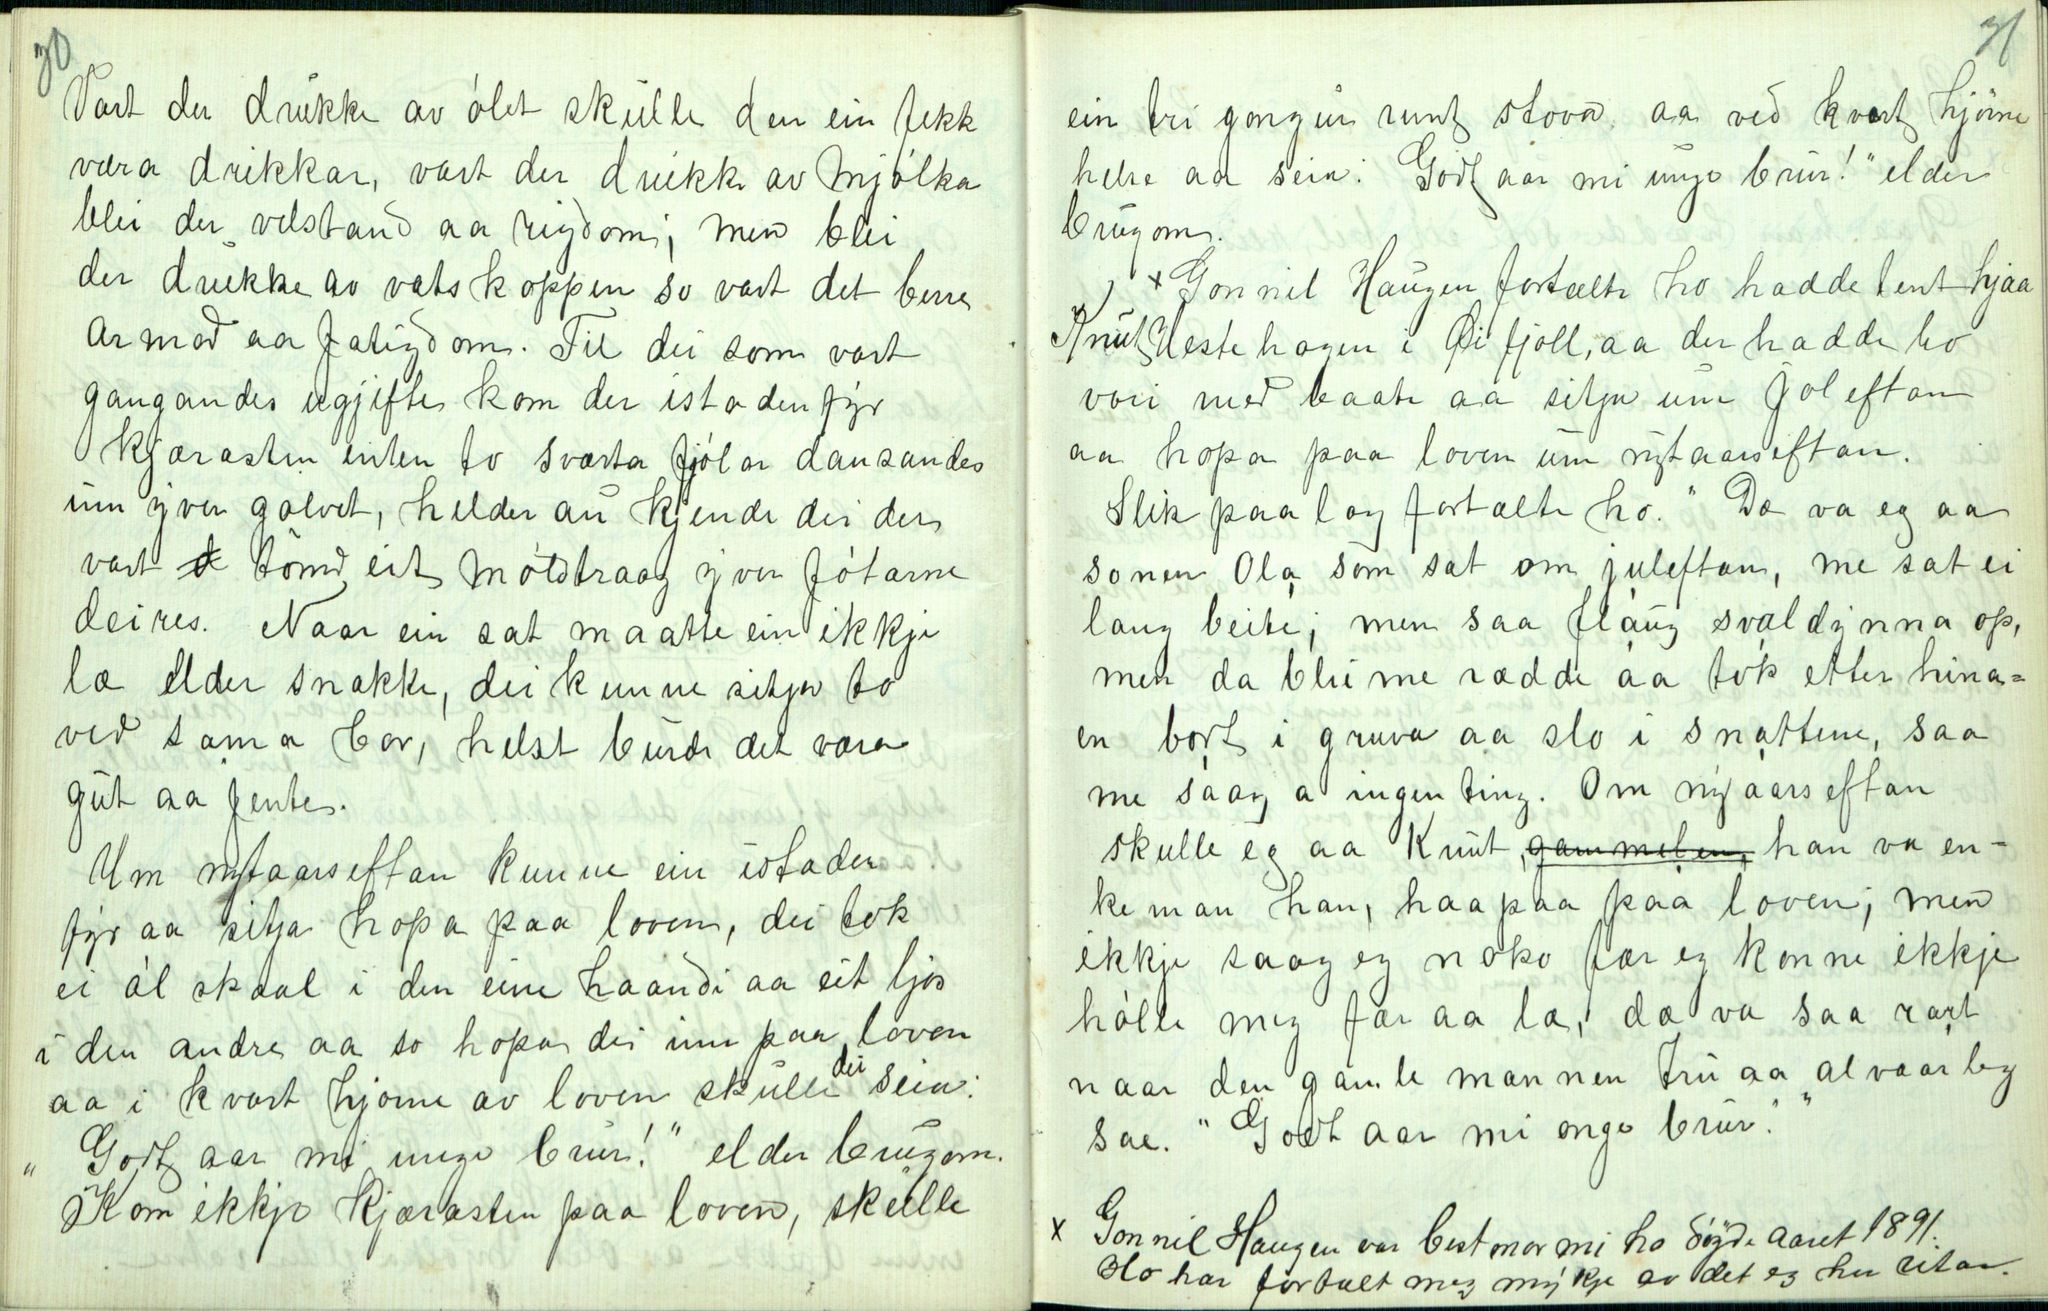 30
Vart der drukke av ólet skulle den ein fekk
væra drikkar, vart der drukke av mjólka
blei der velstand aa rigdom; men blei
der drukke av vatskoppen so vart det berre
armod aa fatigdom. Til dei som vart
gangandes ugjifte kom der istaden fyr
kjærasten enten to svarta fjólar dansandes
um yver golvet, helder au kjende dei der
vart tómd eit móldtraag yver fótarne
deires. Naar ein sat maatte ein ikkje
læ elder snakke, dei kunne sitja to
ved sama bor, helst burde det være
gut aa jente.
Um nytaarseftan kunne ein istaden
fyr aa sitja hopa paa loven, dei tok
ei ól skaal i den eine haandi aa eit ljos
i den andre aa so hopa dei inn paa loven
aa i kvart hjorne av loven skulle dei seia:
" Godt aar mi unge brur!" elder brugom.
Kom ikkje kjærasten paa loven, skulle
31
ein tri gongur runt stova aa ved kvart hjórne
helse aa seia: Godt aar mi unge brur!" elder
brugom.
x Gonnil Haugen fortælte ho hadde tent hjaa
Knut Hestehagen i Øifjoll, aa der hadde ho
vori med baate aa sitja um joleftan
aa hopa paa loven um nytaarseftan.
Slik paa lag fortælte ho. " Dæ va eg aa
sonen Ola som sat om juleftan, me sat ei
lang beite; men saa flaug svaldynna op,
men da blei me rædde aa tok etter hina=
en bort i gruva aa slo i snattene, saa
me saag a ingen ting. Om nyaarseftan
skulle eg aa Knut, gammelen, han va en-
keman han, haapaa paa loven; men
ikkje saag eg noko fær eg konne ikkje
hólle meg fær aa læ, dæ va saa rart
naar den gamle mannen tru aa alvaarleg
sae. " Godt aar mi onge brur."
x Gonnil Haugen var bestmor mi ho dóyde aaret 1891.
Ho har fortalt meg mykje av det eg her ritar.